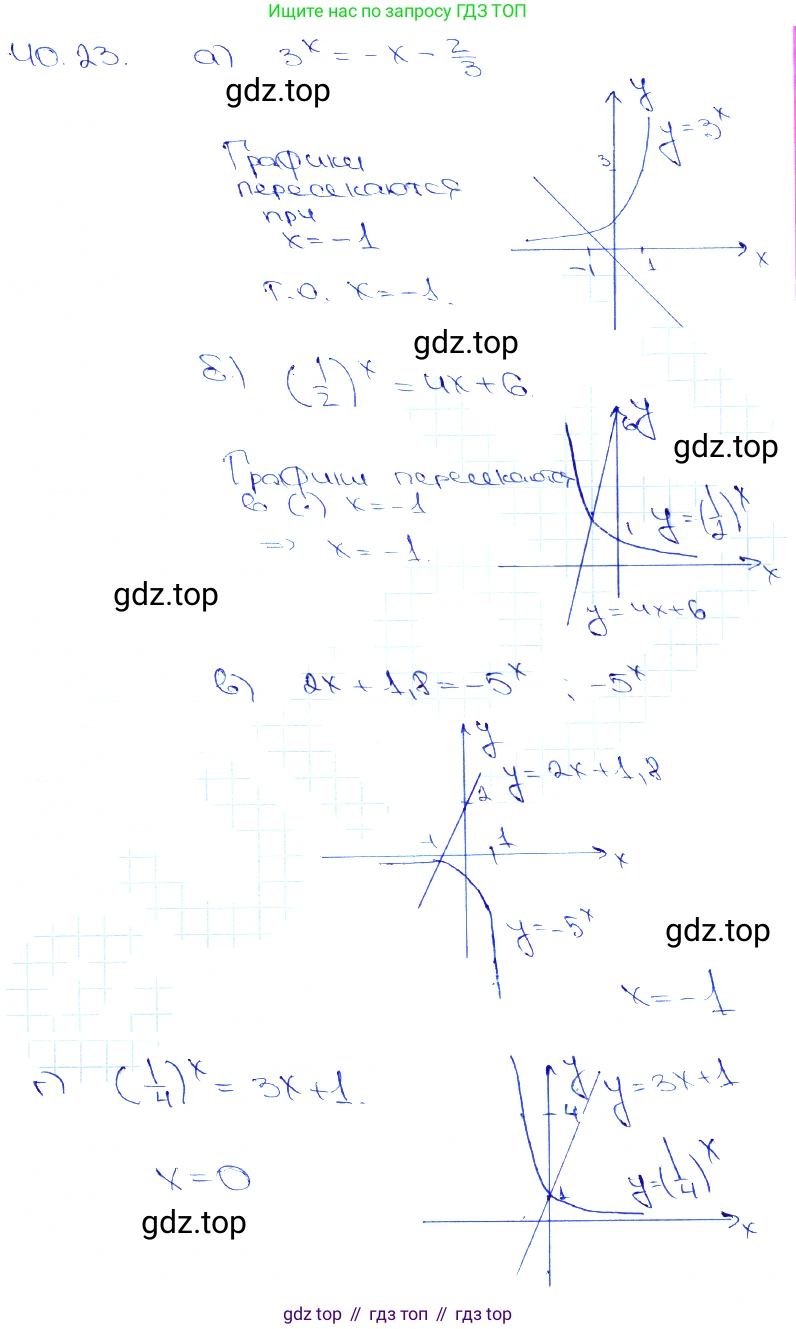 Ищите нас по запросу ГДЗ ТОП
40.23. а) 3^x = -x - 2/3
gdz.top
y
y = 3^x
3
Графики
пересекаются
при
x = -1
-1 1 x
т.о. x = -1.
gdz.top
б) (1/2)^x = 4x + 6.
y
6
gdz.top
Графики пересекаются
в (·) x = -1
1 y = (1/2)^x
=> x = -1.
x
gdz.top
y = 4x + 6
в) 2x + 1,8 = -5^x ; -5^x
y
y = 2x + 1,8
2
-1 1
x
y = -5^x
gdz.top
x = -1
г) (1/4)^x = 3x + 1.
y y = 3x + 1
4
x = 0
1 y = (1/4)^x
gdz.top
x
gdz top // гдз топ // gdz top